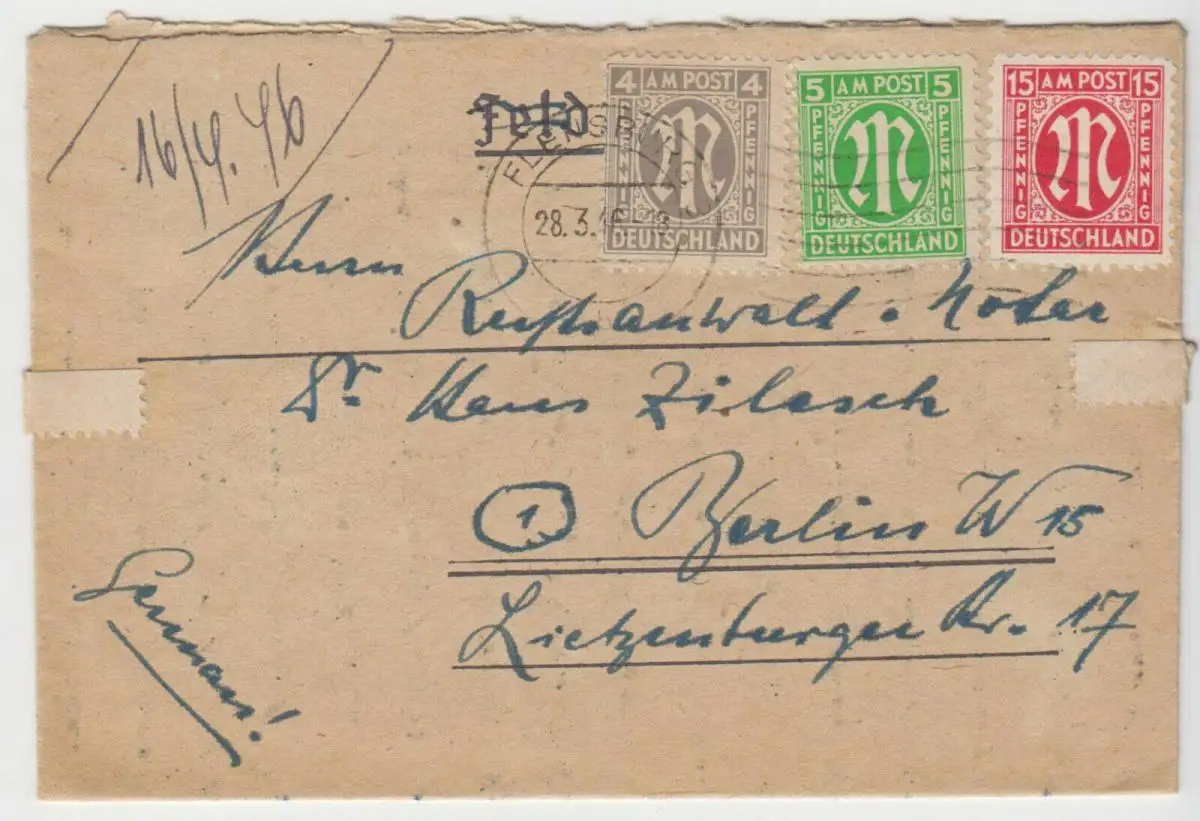 16/4. 46
Feld
4 AM POST 4
PFENNIG PFENNIG
DEUTSCHLAND
5 AM POST 5
PFENNIG PFENNIG
DEUTSCHLAND
15 AM POST 15
PFENNIG PFENNIG
DEUTSCHLAND
FLENSBU
28.3.46
Herrn
Rechtsanwalt u. Notar
Dr. Hans Zilesch
1 Berlin W 15
Lietzenburger Str. 17
German!